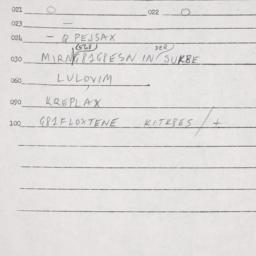 021. O 022 O
023. —
026. — Q PEJSAX
030. MIRN G81G8ESN IN SUKBE
060. LULOVIM
090 KREPLAX
100. G81FLOXTENE KITKBES / +